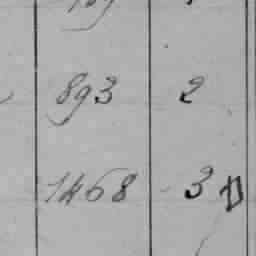 893 2
1468 3